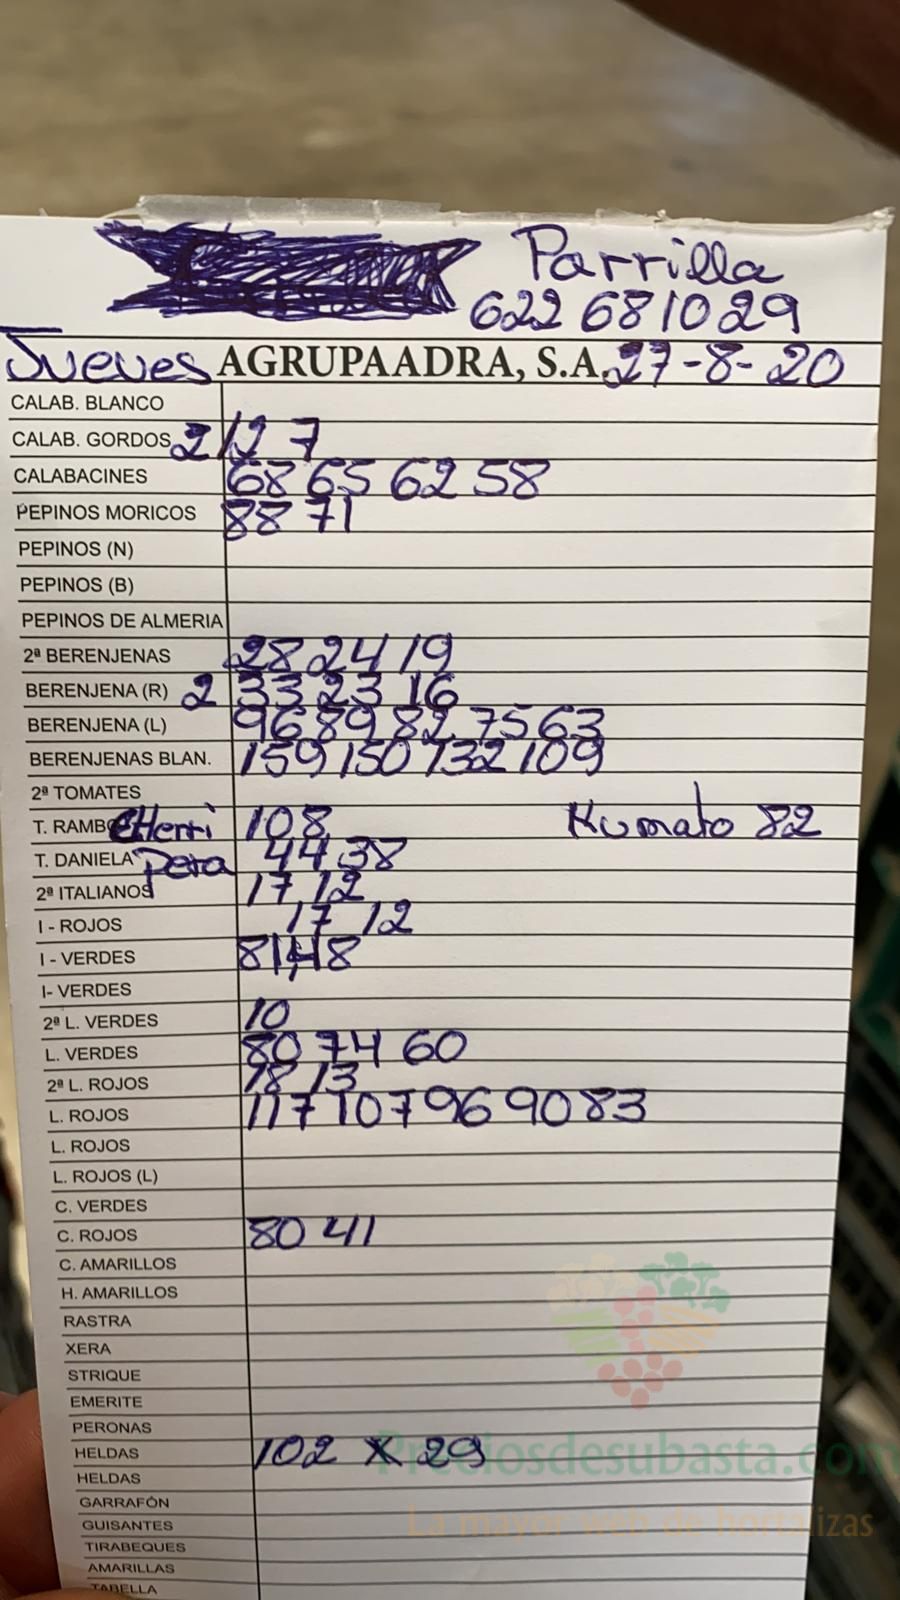 Parrilla
622 681029
Jueves AGRUPAADRA, S.A. 27-8-20
CALAB. BLANCO
CALAB. GORDOS 2 12 7
CALABACINES 68 65 62 58
PEPINOS MORICOS 88 71
PEPINOS (N)
PEPINOS (B)
PEPINOS DE ALMERIA
2ª BERENJENAS 28 24 19
BERENJENA (R) 2 33 23 16
BERENJENA (L) 96 89 82 75 63
BERENJENAS BLAN. 159 150 132 109
2ª TOMATES
T. RAMBO CHerri 108 Kumato 82
T. DANIELA Pera 44 38
2ª ITALIANOS 17 12
I - ROJOS 17 12
I - VERDES 81 48
I- VERDES
2ª L. VERDES 10
L. VERDES 80 74 60
2ª L. ROJOS 18 13
L. ROJOS 117 107 96 90 83
L. ROJOS
L. ROJOS (L)
C. VERDES
C. ROJOS 80 41
C. AMARILLOS
H. AMARILLOS
RASTRA
XERA
STRIQUE
EMERITE
PERONAS
HELDAS 102 X 29
HELDAS
GARRAFÓN
GUISANTES
TIRABEQUES
AMARILLAS
TABELLA
Preciosdesubasta.com
La mayor web de hortalizas